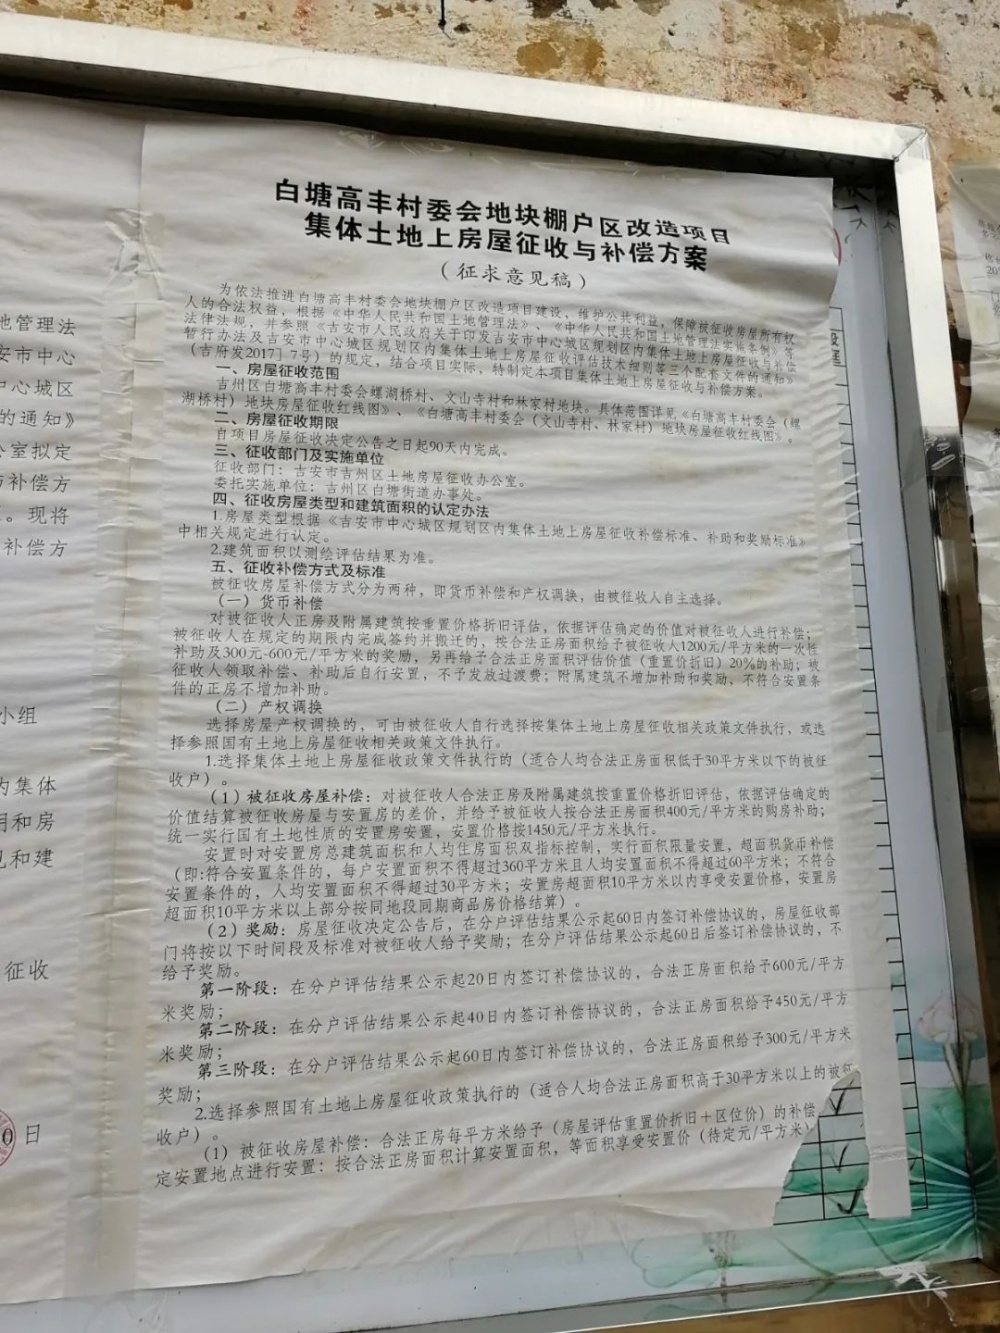 地管理法
安市中心
中心城区
的通知》
公室拟定
与补偿方
。现将
补偿方
小组
内集体
用和房
见和建
征收
0日
白塘高丰村委会地块棚户区改造项目
集体土地上房屋征收与补偿方案
(征求意见稿)
为依法推进白塘高丰村委会地块棚户区改造项目建设,维护公共利益,保障被征收房屋所有权
人的合法权益,根据《中华人民共和国土地管理法》、《中华人民共和国土地管理法实施条例》等
法律法规,并参照《吉安市人民政府关于印发吉安市中心城区规划区内集体土地上房屋征收与补偿
暂行办法及吉安市中心城区规划区内集体土地上房屋征收评估技术细则等三个配套文件的通知》
(吉府发2017〕7号)的规定,结合项目实际,特制定本项目集体土地上房屋征收与补偿方案。
一、房屋征收范围
吉州区白塘高丰村委会螺湖桥村、文山寺村和林家村地块。具体范围详见《白塘高丰村委会(螺
湖桥村)地块房屋征收红线图》、《白塘高丰村委会(文山寺村、林家村)地块房屋征收红线图》。
二、房屋征收期限
自项目房屋征收决定公告之日起90天内完成。
三、征收部门及实施单位
征收部门:吉安市吉州区土地房屋征收办公室。
委托实施单位:吉州区白塘街道办事处。
四、征收房屋类型和建筑面积的认定办法
1.房屋类型根据《吉安市中心城区规划区内集体土地上房屋征收补偿标准、补助和奖励标准》
中相关规定进行认定。
2.建筑面积以测绘评估结果为准。
五、征收补偿方式及标准
被征收房屋补偿方式分为两种,即货币补偿和产权调换,由被征收人自主选择。
(一)货币补偿
对被征收人正房及附属建筑按重置价格折旧评估,依据评估确定的价值对被征收人进行补偿;
被征收人在规定的期限内完成签约并搬迁的,按合法正房面积给予被征收人1200元/平方米的一次性
补助及300元-600元/平方米的奖励,另再给予合法正房面积评估价值(重置价折旧)20%的补助;被
征收人领取补偿、补助后自行安置,不予发放过渡费;附属建筑不增加补助和奖励,不符合安置条
件的正房不增加补助。
(二)产权调换
选择房屋产权调换的,可由被征收人自行选择按集体土地上房屋征收相关政策文件执行,或选
择参照国有土地上房屋征收相关政策文件执行。
1.选择集体土地上房屋征收政策文件执行的(适合人均合法正房面积低于30平方米以下的被征
收户)。
(1)被征收房屋补偿:对被征收人合法正房及附属建筑按重置价格折旧评估,依据评估确定的
价值结算被征收房屋与安置房的差价,并给予被征收人按合法正房面积400元/平方米的购房补助;
统一实行国有土地性质的安置房安置,安置价格按1450元/平方米执行。
安置时对安置房总建筑面积和人均住房面积双指标控制,实行面积限量安置,超面积货币补偿
(即:符合安置条件的,每户安置面积不得超过360平方米且人均安置面积不得超过60平方米;不符合
安置条件的,人均安置面积不得超过30平方米;安置房超面积10平方米以内享受安置价格,安置房
超面积10平方米以上部分按同地段同期商品房价格结算)。
(2)奖励:房屋征收决定公告后,在分户评估结果公示起60日内签订补偿协议的,房屋征收部
门将按以下时间段及标准对被征收人给予奖励;在分户评估结果公示起60日后签订补偿协议的,不
给予奖励。
第一阶段:在分户评估结果公示起20日内签订补偿协议的,合法正房面积给予600元/平方
米奖励;
第二阶段:在分户评估结果公示起40日内签订补偿协议的,合法正房面积给予450元/平方
米奖励;
第三阶段:在分户评估结果公示起60日内签订补偿协议的,合法正房面积给予300元/平方米
奖励;
2.选择参照国有土地上房屋征收政策执行的(适合人均合法正房面积高于30平方米以上的被征
收户)。
(1)被征收房屋补偿:合法正房每平方米给予(房屋评估重置价折旧+区位价)的补偿
定安置地点进行安置:按合法正房面积计算安置面积,等面积享受安置价(待定元/平方米)